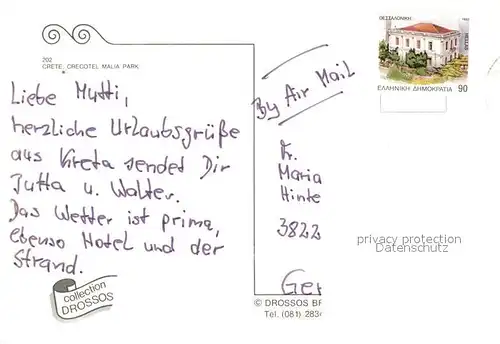 ΘΕΣΣΑΛΟΝΙΚΗ
HELLAS
ΕΛΛΗΝΙΚΗ ΔΗΜΟΚΡΑΤΙΑ 90
202
CRETE: CRECOTEL MALIA PARK
By Air Mail
Liebe Mutti,
herzliche Urlaubsgrüße
aus Kreta sendet Dir
Jutta u. Walter.
Das Wetter ist prima,
ebenso Hotel und der
Strand.
Maria
Hinte
3822
Ger
privacy protection
Datenschutz
collection
DROSSOS
© DROSSOS BR
Tel. (081) 283